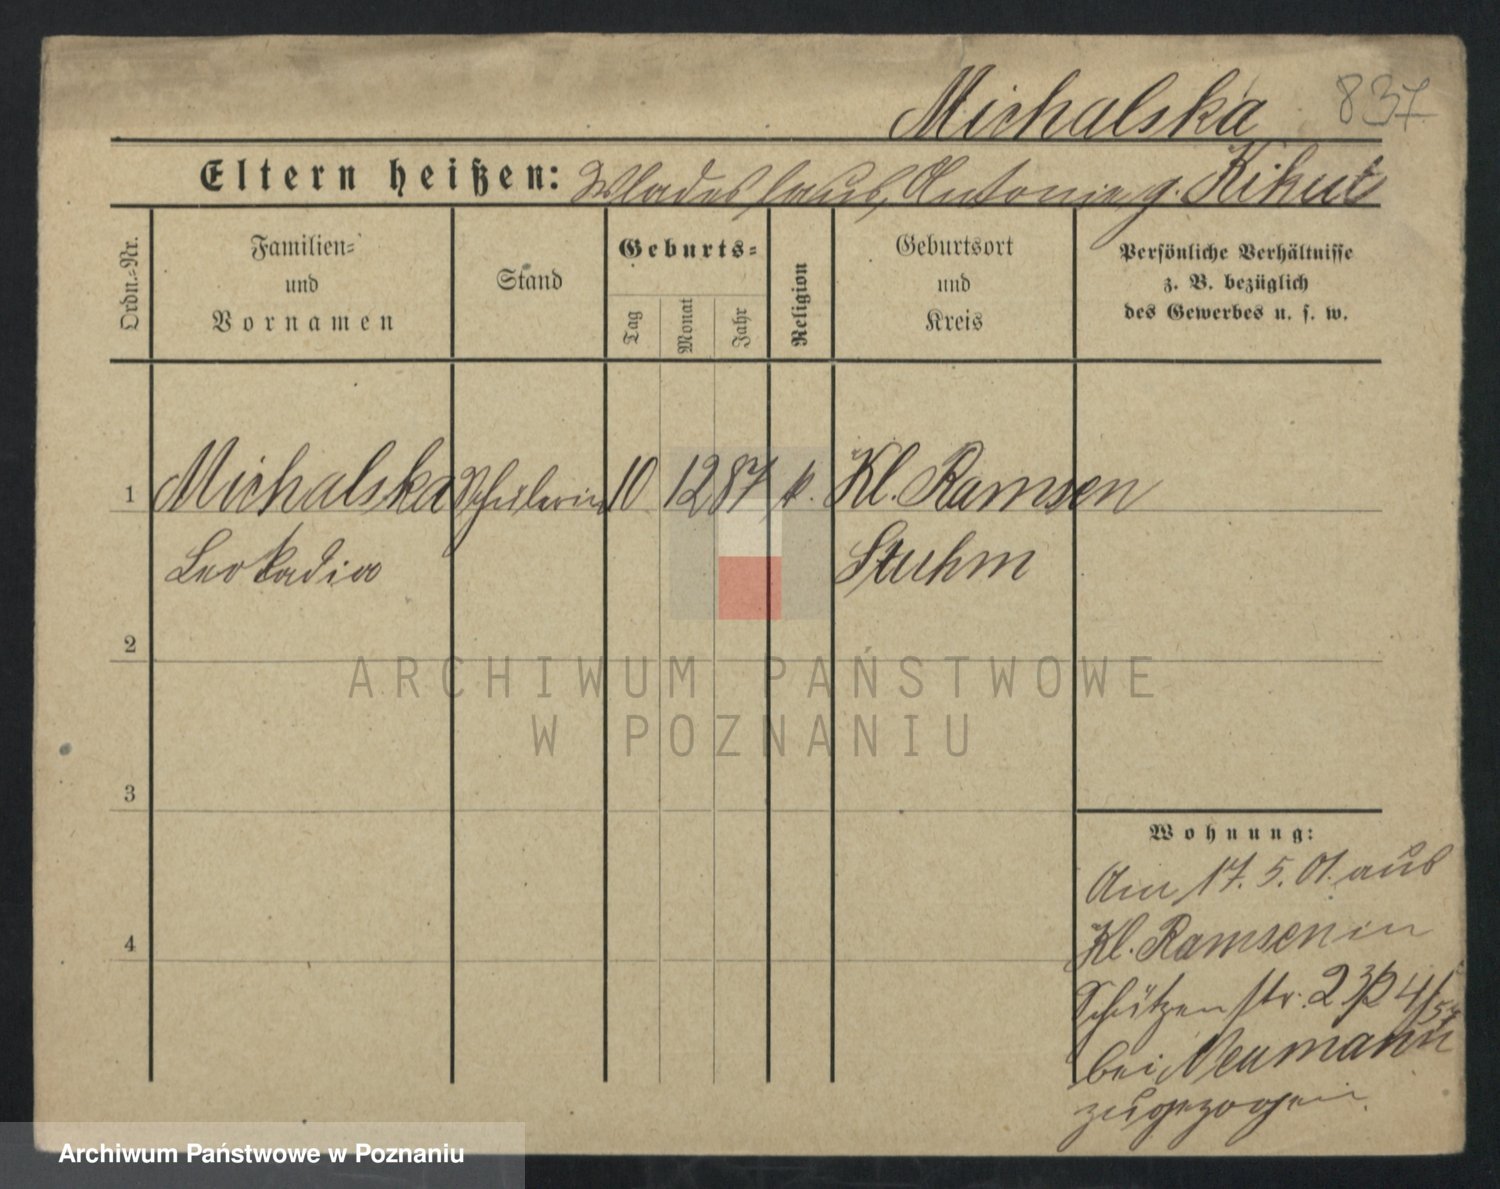 Michalska 837
Eltern heißen: Wladeslaus, Antonie g. Kihut
Ordn.-Nr.
Familien-
und
Vornamen
Stand
Geburts-
Tag
Monat
Jahr
Religion
Geburtsort
und
Kreis
Persönliche Verhältnisse
z. B. bezüglich
des Gewerbes u. s. w.
1 Michalska Schülerin 10 12 87 k. Kl. Ramsen
Leokadia Stuhm
2
ARCHIWUM PAŃSTWOWE
W POZNANIU
3
Wohnung:
Am 17. 5. 01 aus
4
Kl. Ramsen in
Schützenstr. 23
bei Neumann
zugezogen.
Archiwum Państwowe w Poznaniu